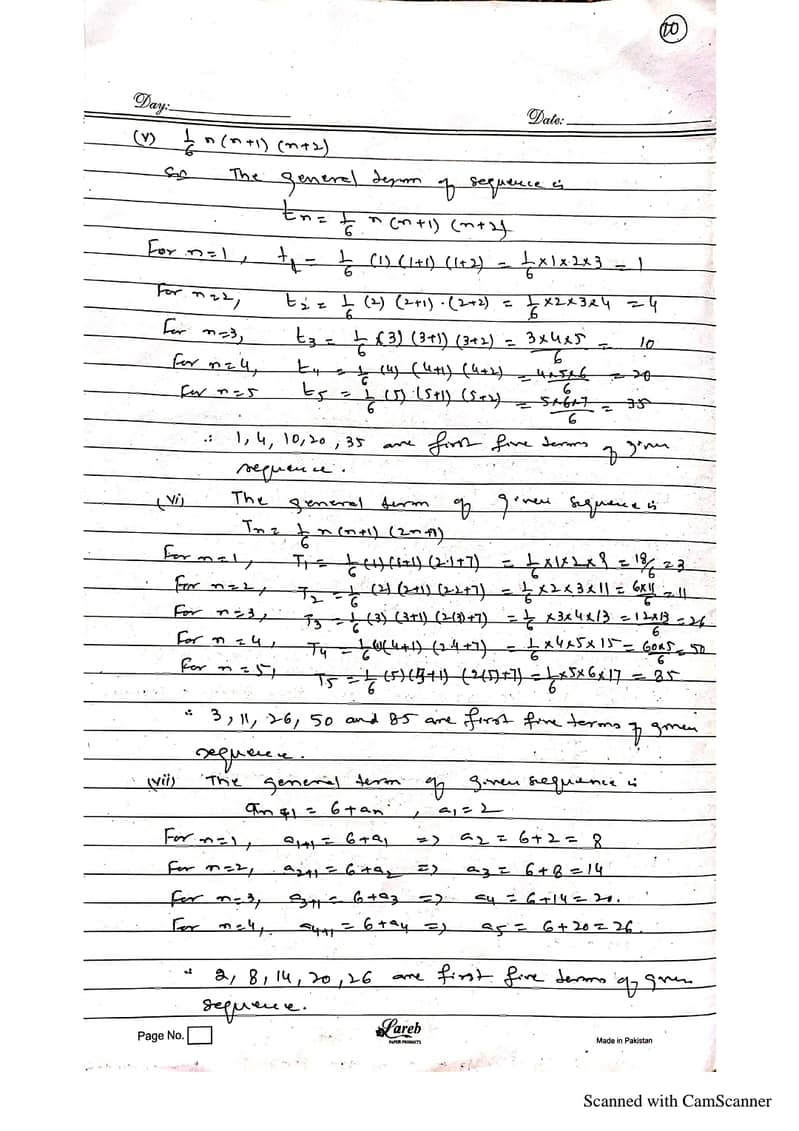 20
Day:
Date:
(v) 1/6 n(n+1)(n+2)
Sol The general term of sequence is
tn = 1/6 n(n+1)(n+2)
For n=1, t1 = 1/6 (1)(1+1)(1+2) = 1/6 ×1×2×3 = 1
For n=2, t2 = 1/6 (2)(2+1)·(2+2) = 1/6 ×2×3×4 = 4
For n=3, t3 = 1/6 (3)(3+1)(3+2) = 3×4×5/6 = 10
For n=4, t4 = 1/6 (4)(4+1)(4+2) = 4×5×6/6 = 20
For n=5 t5 = 1/6 (5)·(5+1)(5+2) = 5×6×7/6 = 35
∴ 1, 4, 10, 20, 35 are first five terms of given
sequence.
(vi) The general term of given sequence is
Tn = 1/6 n(n+1)(2n+7)
For n=1, T1 = 1/6 (1)(1+1)(2·1+7) = 1/6 ×1×2×9 = 18/6 = 3
For n=2, T2 = 1/6 (2)(2+1)(2·2+7) = 1/6 ×2×3×11 = 6×11/6 = 11
For n=3, T3 = 1/6 (3)(3+1)(2(3)+7) = 1/6 ×3×4×13 = 12×13/6 = 26
For n=4, T4 = 1/6 4(4+1)(2·4+7) = 1/6 ×4×5×15 = 60×5/6 = 50
For n=5, T5 = 1/6 (5)(5+1)(2(5)+7) = 1/6 ×5×6×17 = 85
∴ 3, 11, 26, 50 and 85 are first five terms of given
sequence.
(vii) The general term of given sequence is
an+1 = 6+an, a1 = 2
For n=1, a1+1 = 6+a1 => a2 = 6+2 = 8
For n=2, a2+1 = 6+a2 => a3 = 6+8 = 14
For n=3, a3+1 = 6+a3 => a4 = 6+14 = 20.
For n=4, a4+1 = 6+a4 => a5 = 6+20 = 26.
∴ 2, 8, 14, 20, 26 are first five terms of given
sequence.
Page No.
Lareb
PAPER PRODUCTS
Made in Pakistan
Scanned with CamScanner